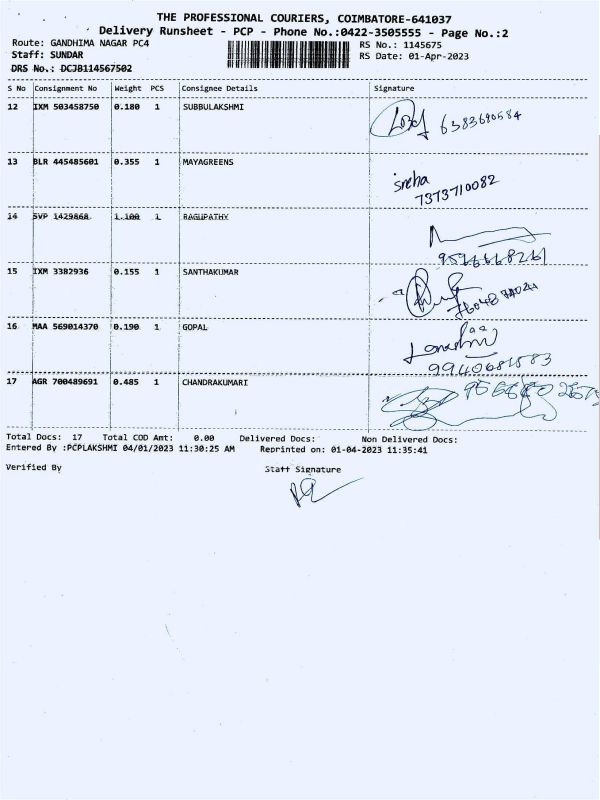 THE PROFESSIONAL COURIERS, COIMBATORE-641037
Delivery Runsheet - PCP - Phone No.:0422-3505555 - Page No.:2
Route: GANDHIMA NAGAR PC4 RS No.: 1145675
Staff: SUNDAR RS Date: 01-Apr-2023
DRS No.: DCJB114567502
S No Consignment No Weight PCS Consignee Details Signature
12 IXM 503458750 0.180 1 SUBBULAKSHMI 6383690584
13 BLR 445485601 0.355 1 MAYAGREENS
sneha
7373710082
14 SVP 1429868 1.100 1 RAGUPATHY
15 IXM 3382936 0.155 1 SANTHAKUMAR
16 MAA 569014370 0.190 1 GOPAL
17 AGR 700489691 0.485 1 CHANDRAKUMARI
Total Docs: 17 Total COD Amt: 0.00 Delivered Docs: Non Delivered Docs:
Entered By :PCPLAKSHMI 04/01/2023 11:30:25 AM Reprinted on: 01-04-2023 11:35:41
Verified By Staff Signature